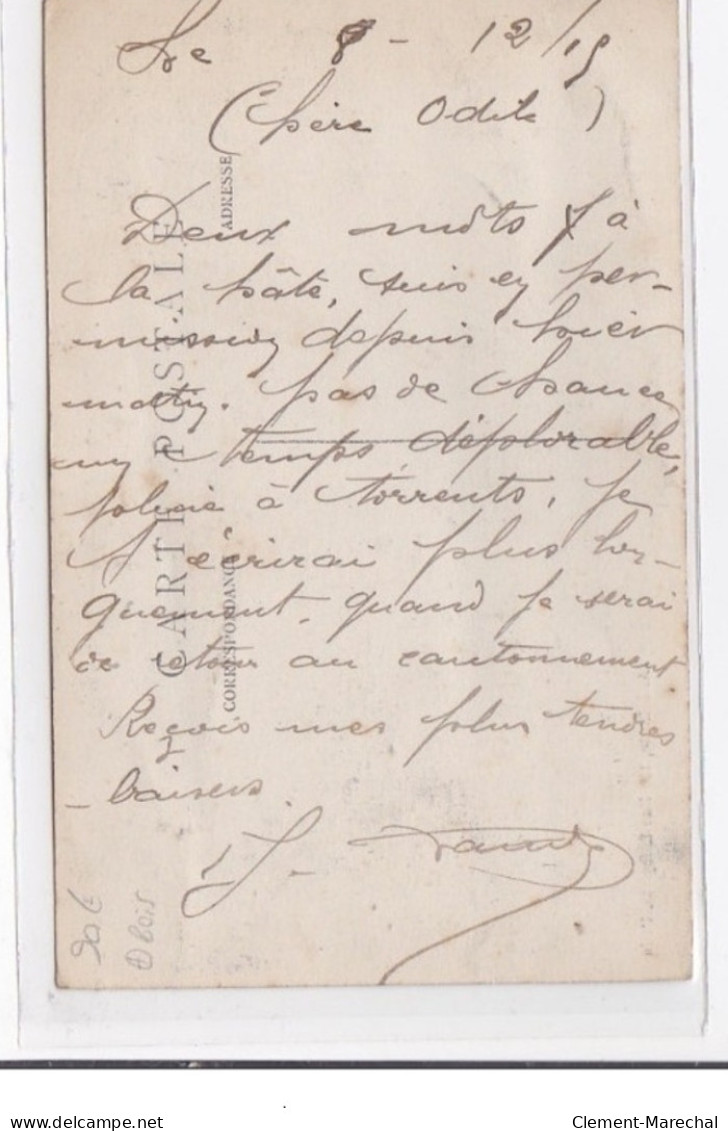 Le 8 - 12/15
(Chère Odile)
Deux mots à
la hâte, suis en per-
mission depuis hier
matin. pas de chance
un temps déplorable,
pluie à torrents, Je
t'écrirai plus lon-
guement, quand je serai
de retour au cantonnement
Reçois mes plus tendres
- baisers.
J.
CARTE POSTALE
ADRESSE
CORRESPONDANCE
delcampe.net
Clement-Marechal